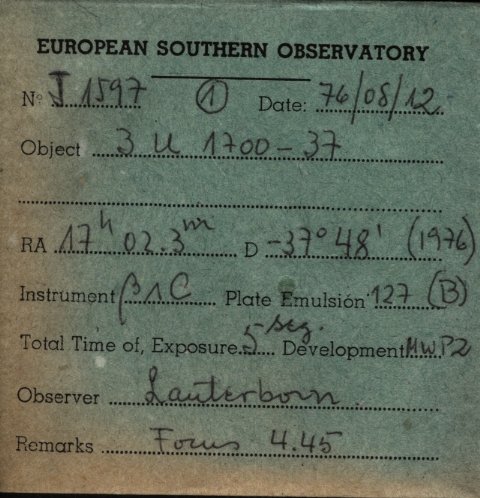 EUROPEAN SOUTHERN OBSERVATORY
Nº J 1597 ① Date: 76/08/12
Object 3 U 1700-37
RA 17h 02.3m D -37° 48' (1976)
Instrument β1C Plate Emulsion 127 (B)
Total Time of, Exposure 5 seg. Development MWP2
Observer Lauterborn
Remarks Focus 4.45